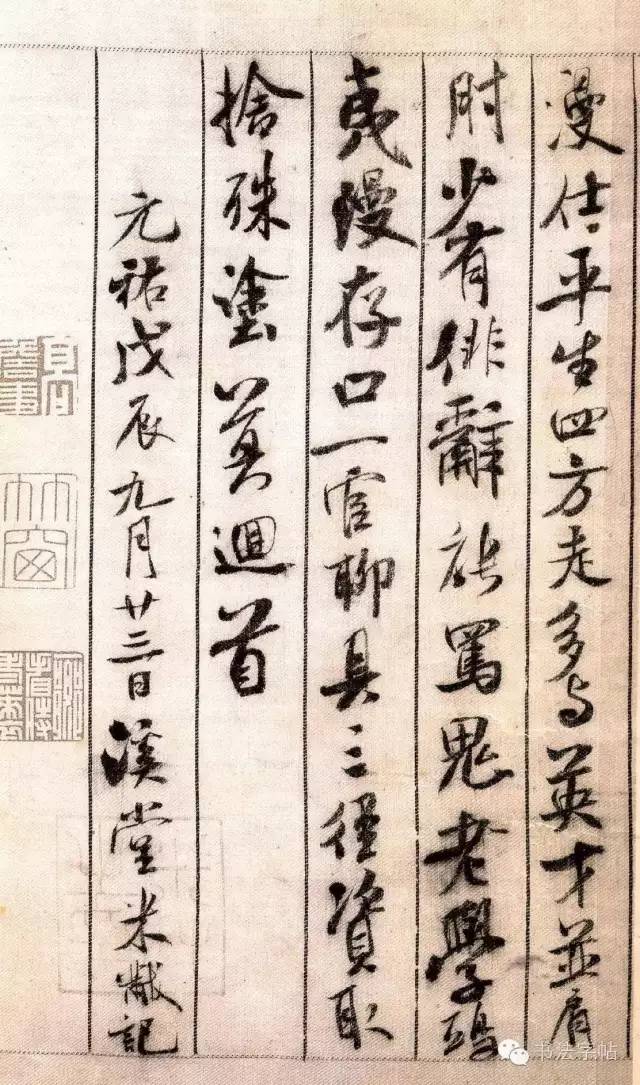 漫仕平生四方走多与英才並肩
肘少有俳辭能罵鬼老學鴟
夷漫存口一官聊具三徑資取
捨殊塗莫迴首
元祐戊辰九月廿三日溪堂米黻記
竹窗
书法字帖